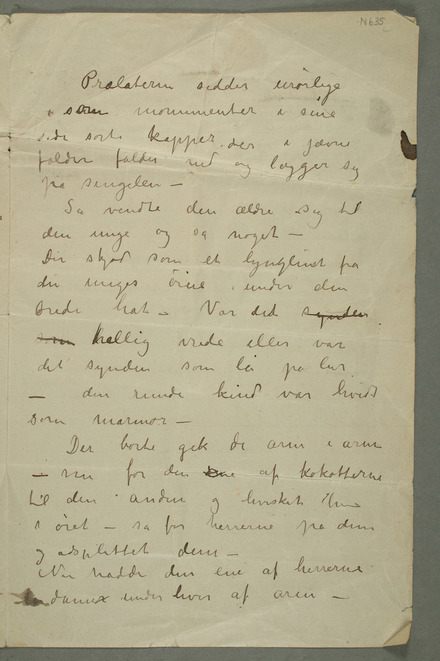 N 635
Prælaterne sidder urørlige
som monumenter i sine
side sorte kapper der i jævne
folder falder ned og lægger sig
på singelen –
Så vendte den ældre sig til
den unge og sa noget –
Der skjød som et lynglimt fra
den unges øine under den
brede hat – Var det synden
som hellig vrede eller var
det synden som lå på lur
– den runde kind var hvidt
som marmor –
Der borte gik de arm i arm
– nu for den ene af kokotterne
til den anden og hvisket
i øret – så for herrerne på dem
og adsplittet dem –
Nu hadde den ene af herrerne
damer under hver af armene –